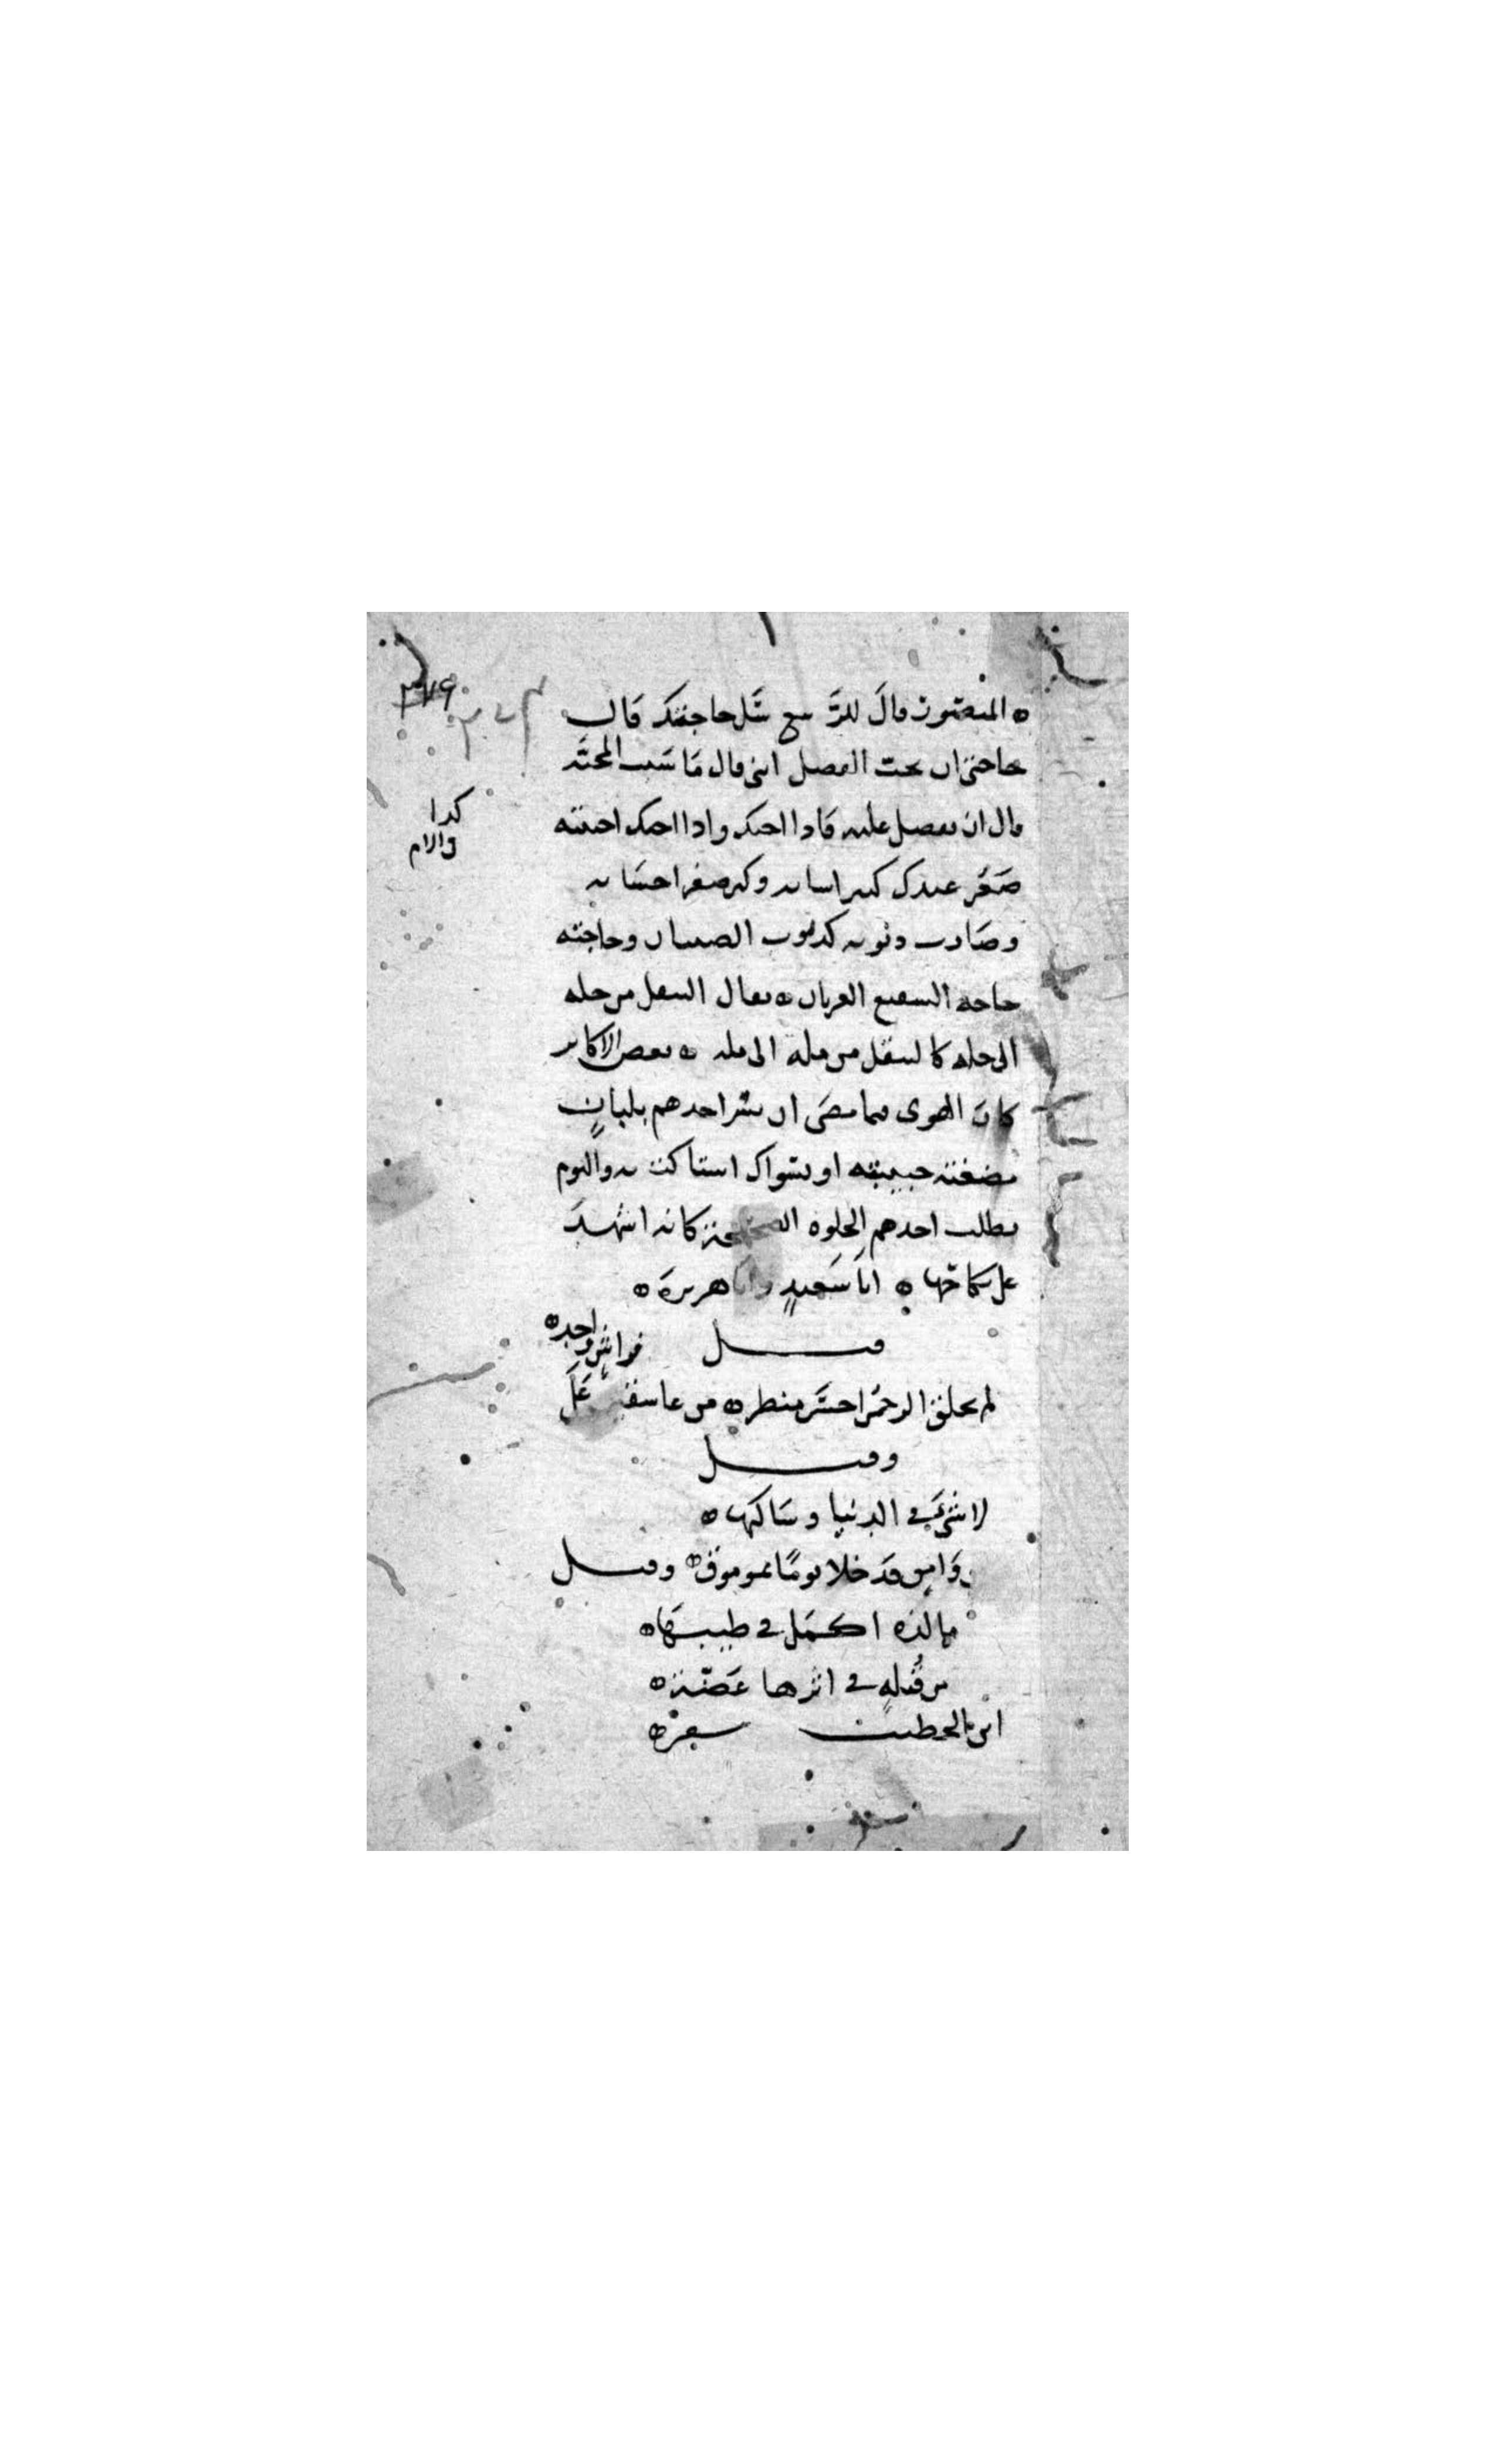 ٣٧٩
المنصور قال للربيع سل حاجتك قال
حاجتي ان تحب الفضل ابني قال ما سبب المحبة
قال ان تفضل عليه فاذا احبك واذا احبك احببته
كذا
في الام
صغر عندك كبير اساته وكبر صغير احسانه
وصارت ذنوبه كذنوب الصبيان وحاجته
حاجة الشفيع العريان ه يقال التنقل من خلة
الى خلة كالتنقل من ملة الى ملة ه بعض الاكابر
كان الهوى فيما مضى ان يسر احدهم بلبان
مضغته حبيبته او بسواك استاكت به واليوم
يطلب احدهم الخلوة الصحيحة كانه اشهد
على نكاحها ه ابا سعيد وابا هريرة ه
قيل
لم يخلق الرحمن احسن منظرا ه من عاشقين على فراش واحد ه
وقيل
لا شيء في الدنيا وساكنها ه
وامق قد خلا يوما بموموق ه وقيل
يا لذة اكمل في طيبها ه
من قبلة في اثرها عضة ه
ابن الخطيب شعره